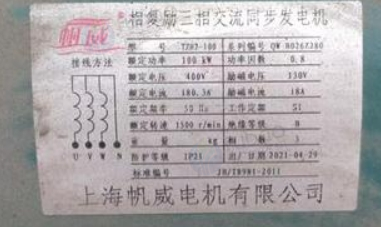 帆威
相复励三相交流同步发电机
接线方法
U V W N
型 号 TZH2-100 系列编号 QW
额定功率 100 kW 功率因数 0.8
额定电压 400V 励磁电压 130V
额定电流 180.5A 励磁电流 18A
额定频率 50 Hz 工作定额 S1
额定转速 1500 r/min 绝缘等级 B
重 量 kg 相 数 3
防护等级 IP21 出厂日期 2021-04-29
标准编号 JB/T8981-2011
上海帆威电机有限公司